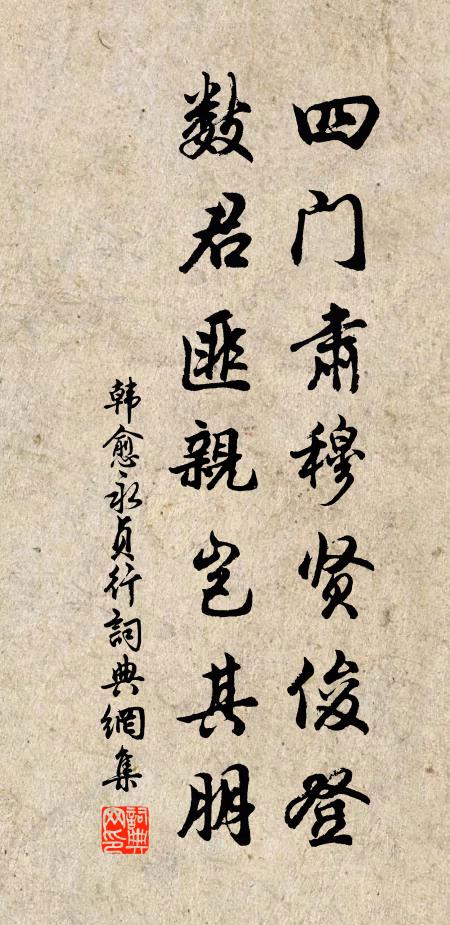 四门肃穆贤俊登
数君匪親岂其朋
韩愈永贞行詞典網集
詞典网印